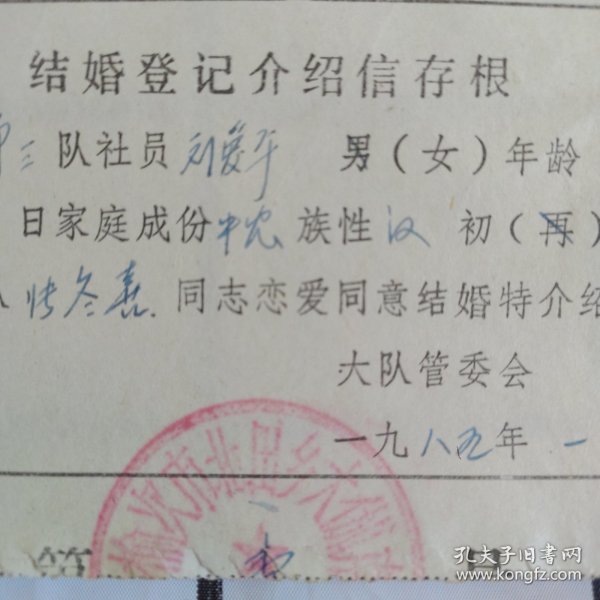 结婚登记介绍信存根
三队社员刘爱华 男(女)年龄
日家庭成份中农族性汉 初(再)
张冬喜同志恋爱同意结婚特介绍
大队管委会
一九八五年一
榆次市北田乡大
第
孔夫子旧书网
www.kongfz.com